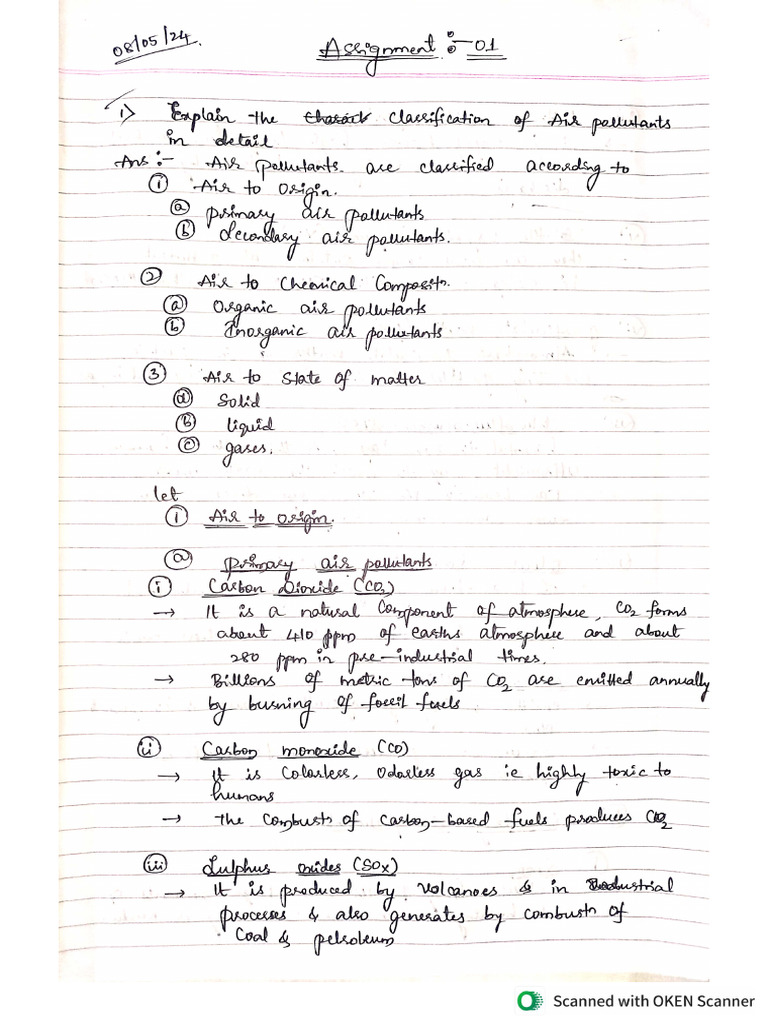 08/05/24.
Assignment :- 01
1) Explain the charact classification of Air pollutants
in detail
Ans :- Air pollutants are classified according to
① Air to origin.
ⓐ primary air pollutants
ⓑ Secondary air pollutants.
② Air to Chemical Composit:
ⓐ Organic air pollutants
ⓑ Inorganic air pollutants
③ Air to state of matter
ⓐ Solid
ⓑ liquid
ⓒ gases.
let
① Air to origin.
ⓐ primary air pollutants
ⓘ Carbon Dioxide (CO₂)
→ It is a natural Component of atmosphere, CO₂ forms
about 410 ppm of earths atmosphere and about
280 ppm in pre-industrial times.
→ Billions of metric tons of CO₂ are emitted annually
by burning of fossil fuels
ii Carbon monoxide (CO)
→ It is Colorless, Odorless gas ie highly toxic to
humans
→ the Combustn of carbon-based fuels produces CO₂
iii Sulphur oxides (SOx)
→ It is produced by Volcanoes & in Industrial
processes & also generates by combustn of
Coal & petroleum
Scanned with OKEN Scanner